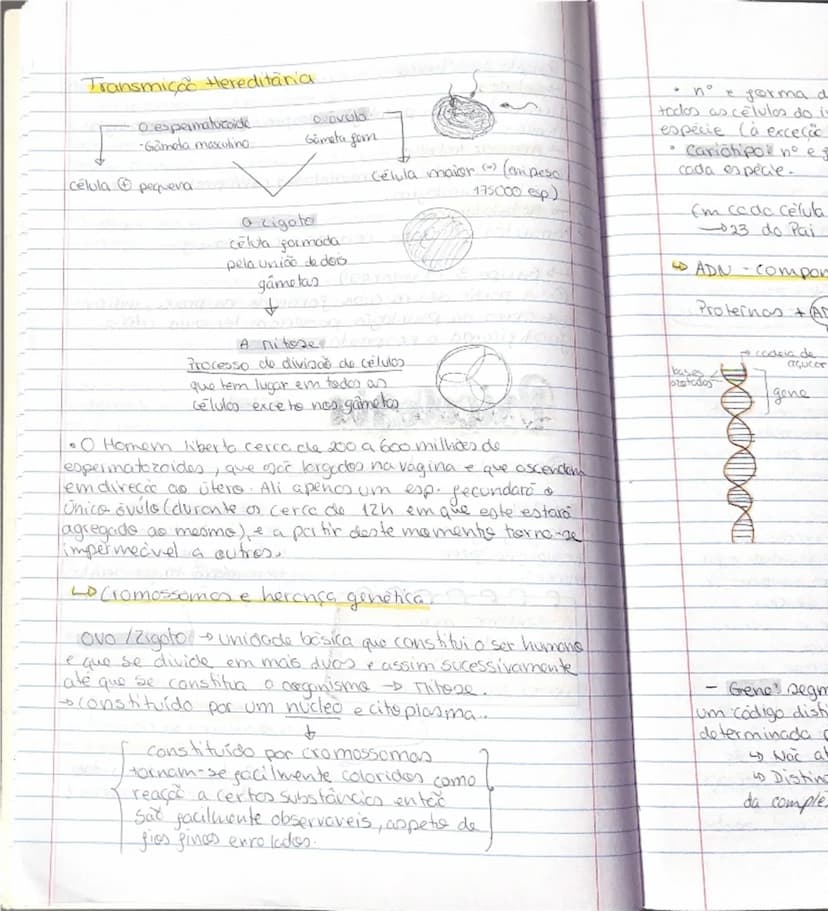 Transmição Hereditária
O espermatozoide
- Gâmeta masculino
O óvulo
Gâmeta fem
célula ⊕ pequena
célula maior (=) (
175000 esp)
O zigoto
célula formada
pela união de dois
gâmetas
↓
A mitose
Processo de divisão de células
que tem lugar em todas as
células exceto nos gâmetas
• O Homem liberta cerca de 200 a 600 milhões de
espermatozoides, que são largados na vagina e que ascendem
em direção ao útero. Ali apenas um esp. fecundará o
único óvulo (durante as cerca de 12h em que este estará
agregado ao mesmo), e a partir deste momento torna-se
impermeável a outros.
↳ Cromossomas e herança genética
Ovo / Zigoto → unidade básica que constitui o ser humano
e que se divide em mais duas e assim sucessivamente
até que se constitua o organismo → mitose.
→ constituído por um núcleo e citoplasma.
↓
constituído por cromossomas
tornam-se facilmente coloridos como
reação a certas substâncias então
são facilmente observaveis, aspeto de
fios finos enrolados.
• nº e forma d
todas as células do i
espécie (à exceção
• Cariótipo: nº e f
cada espécie.
Em cada célula
→ 23 do Pai
↳ ADN - compon
Proteínas + (AD
→ cadeia de
açucar
bases
azotadas
gene
- Gene: segm
um código disti
determinada p
↳ Não al
↳ Distin
da comple